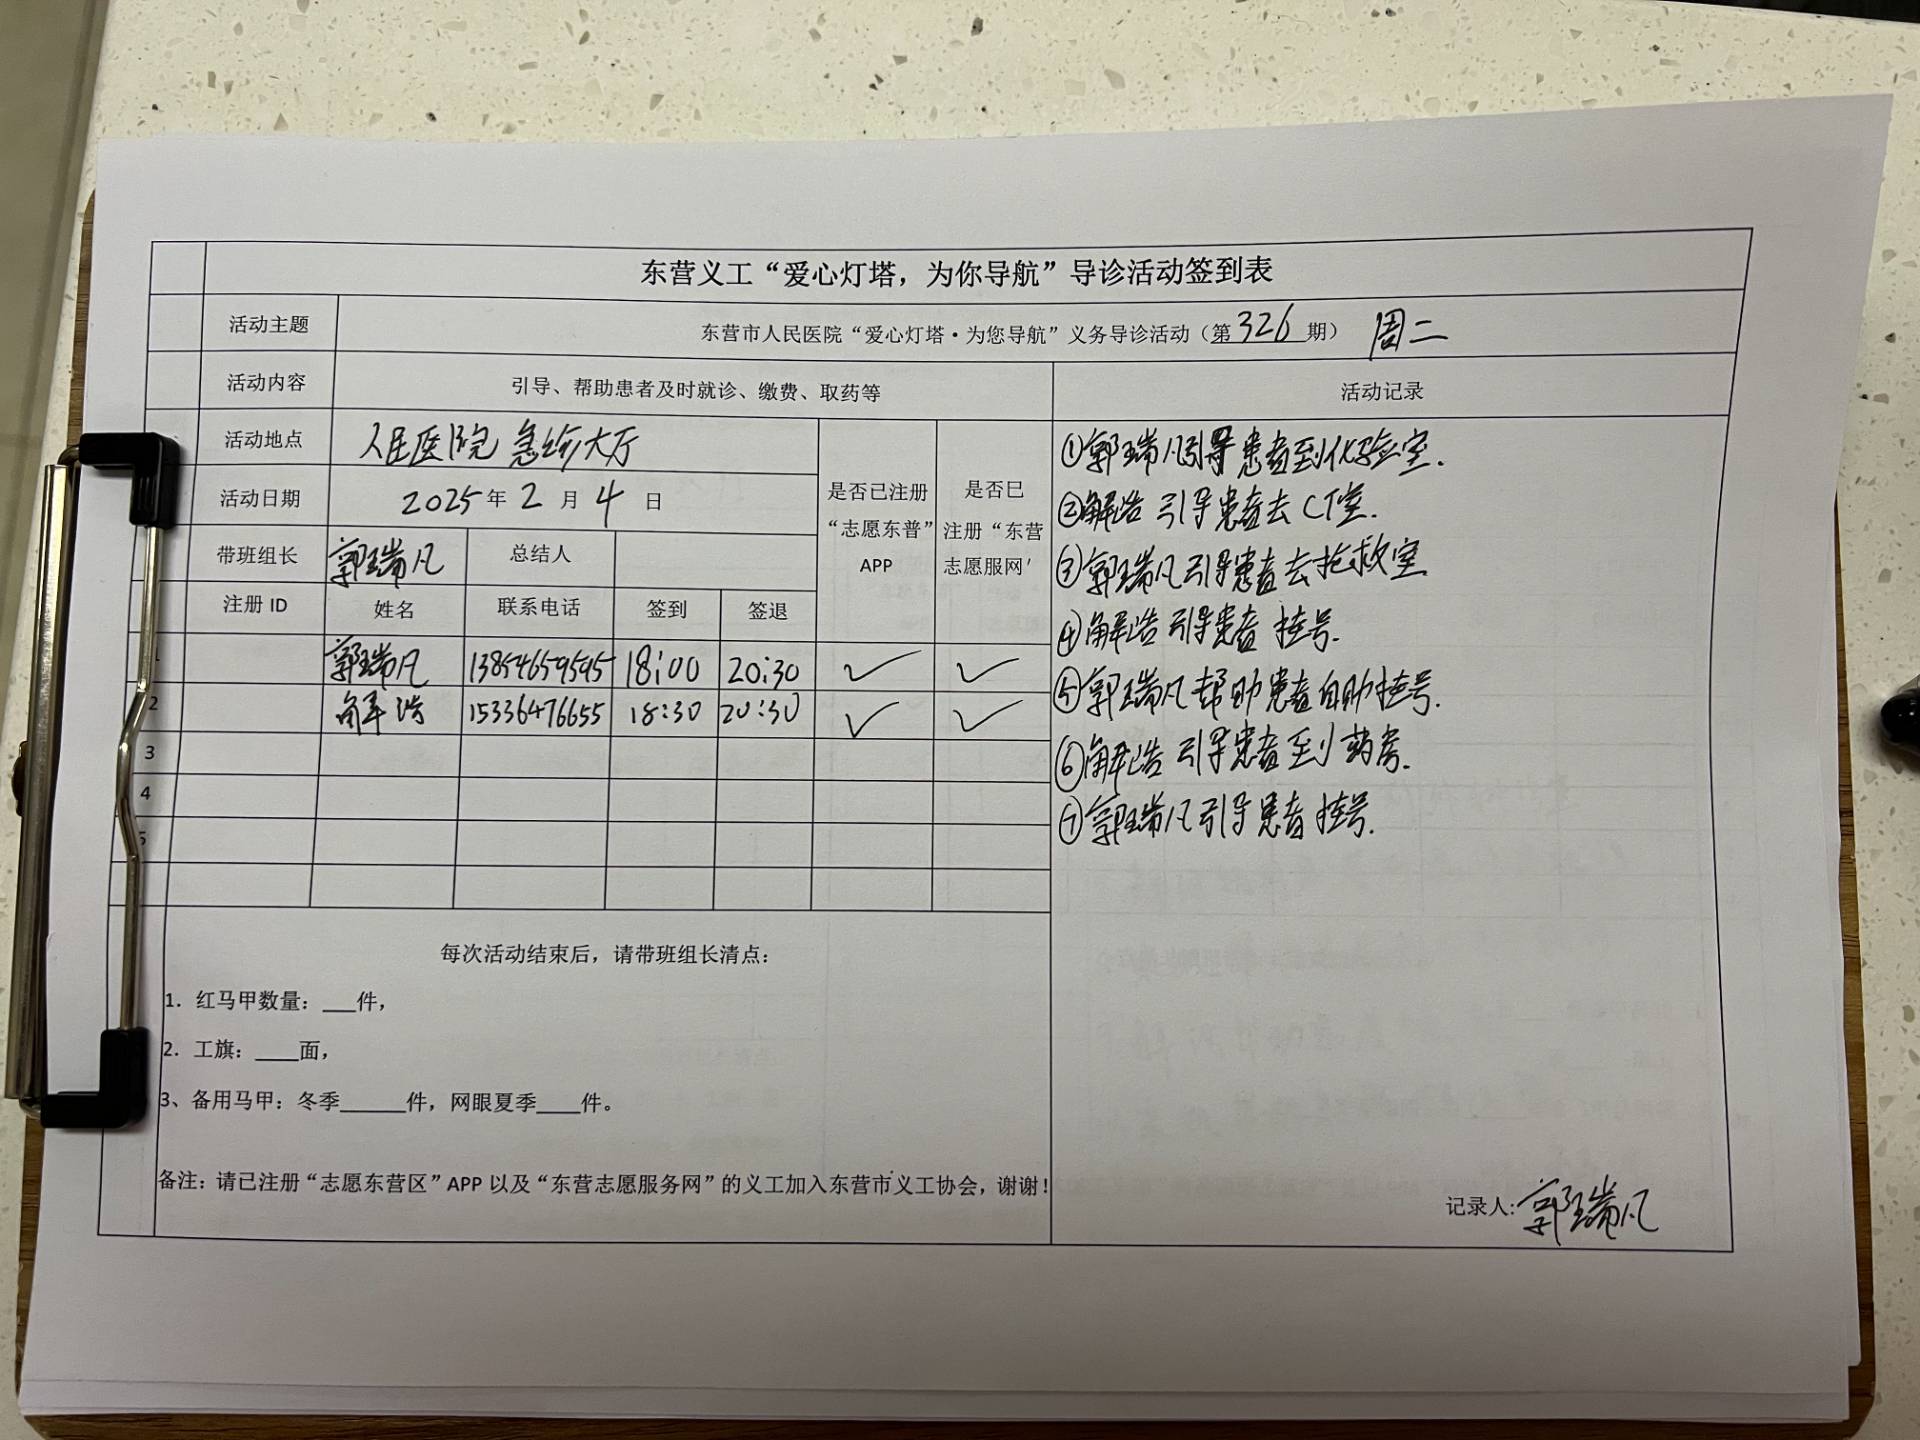 东营义工“爱心灯塔，为你导航”导诊活动签到表
活动主题 东营市人民医院“爱心灯塔·为您导航”义务导诊活动（第326期） 周二
活动内容 引导、帮助患者及时就诊、缴费、取药等 活动记录
活动地点 人民医院 急诊大厅
活动日期 2025年 2 月 4 日
是否已注册“志愿东普”APP
是否已注册“东营志愿服网'
带班组长 郭瑞凡 总结人
注册 ID 姓名 联系电话 签到 签退
1 郭瑞凡 13854659595 18:00 20:30 ✓ ✓
2 解浩 15336476655 18:30 20:30 ✓ ✓
3
4
5
①郭瑞凡引导患者到化验室.
②解浩 引导患者去CT室.
③郭瑞凡引导患者去抢救室
④解浩 引导患者 挂号.
⑤郭瑞凡帮助患者自助挂号.
⑥解浩 引导患者到药房.
⑦郭瑞凡引导患者挂号.
每次活动结束后，请带班组长清点：
1. 红马甲数量：___件，
2. 工旗：____面，
3、备用马甲：冬季______件，网眼夏季____件。
备注：请已注册“志愿东营区”APP 以及“东营志愿服务网”的义工加入东营市义工协会，谢谢！
记录人:郭瑞凡